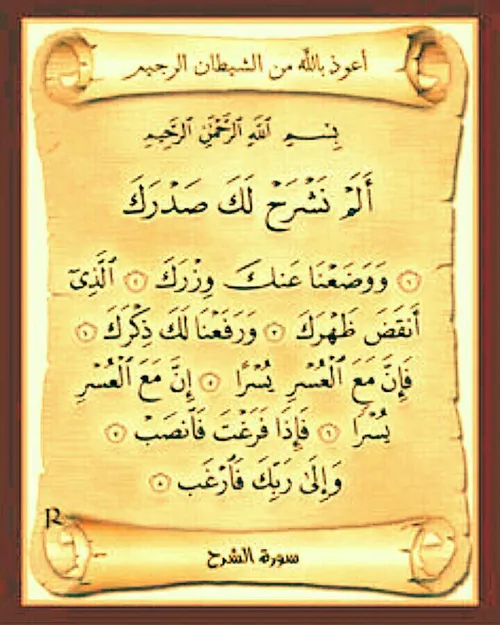 أعوذ بالله من الشيطان الرجيم
بِسْمِ ٱللَّهِ ٱلرَّحْمَٰنِ ٱلرَّحِيمِ
أَلَمْ نَشْرَحْ لَكَ صَدْرَكَ
١ وَوَضَعْنَا عَنكَ وِزْرَكَ ٢ ٱلَّذِىٓ
أَنقَضَ ظَهْرَكَ ٣ وَرَفَعْنَا لَكَ ذِكْرَكَ ٤
فَإِنَّ مَعَ ٱلْعُسْرِ يُسْرًا ٥ إِنَّ مَعَ ٱلْعُسْرِ
يُسْرًا ٦ فَإِذَا فَرَغْتَ فَٱنصَبْ ٧
وَإِلَىٰ رَبِّكَ فَٱرْغَب ٨
JR
سورة الشرح